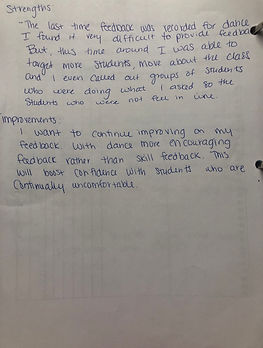 Strengths
"The last time feedback was recorded for dance
I found it very difficult to provide feedba
But, this time around I was able to
target more students, move about the class
and I even called out groups of students
who were doing what I asked so the
Students who were not feel in line.
Improvements:
I want to continue improving on my
feedback with dance more encouraging
feedback rather than skill feedback. This
will boost confidence with students who are
Continually uncomfortable.